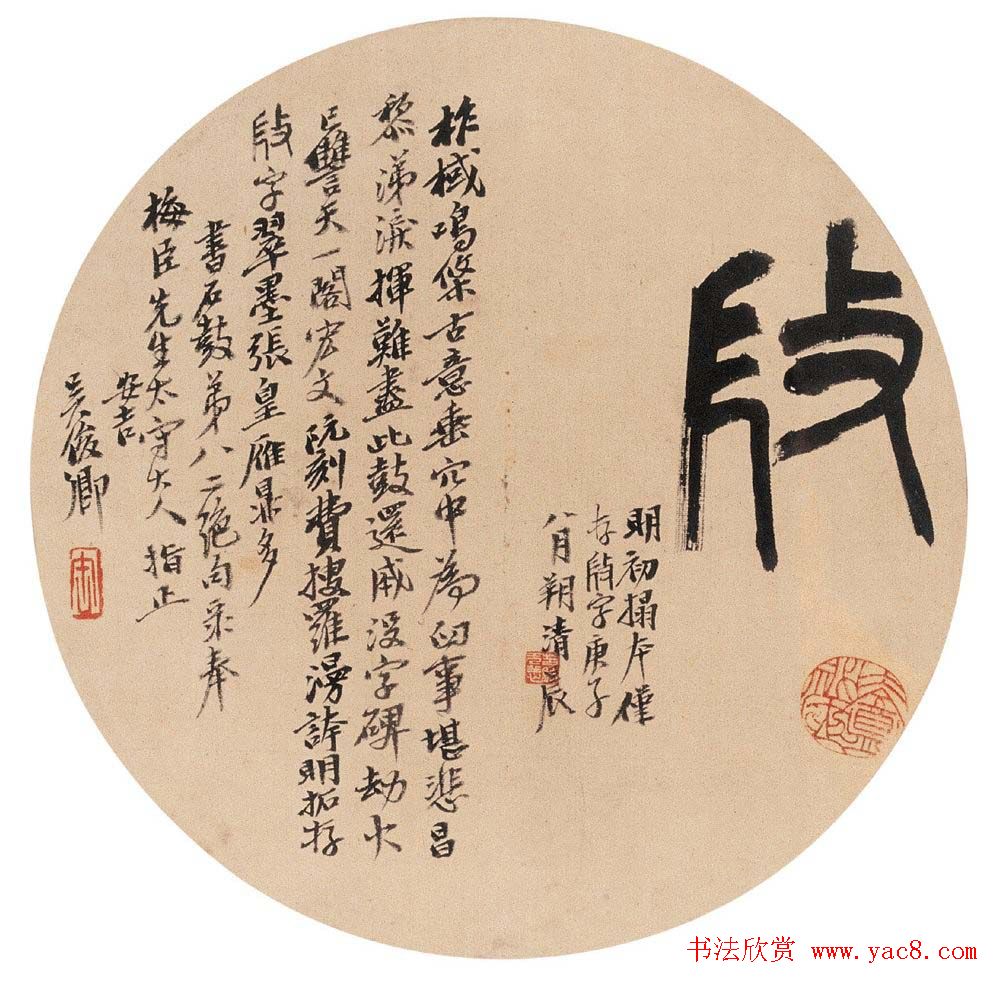 明初搨本僅
存字庚子
八月朔清晨
柞棫鳴條古意垂穴中為臼事堪悲昌
黎涕淚揮難盡此鼓還成沒字碑劫火
已讐天一閣宏文阮刻費搜羅漫誇明拓存
字翠墨張皇雁鼎多
書石鼓第八二絕句录奉
梅臣先生太守大人指正
安吉
吳俊卿
书法欣赏 www.yac8.com